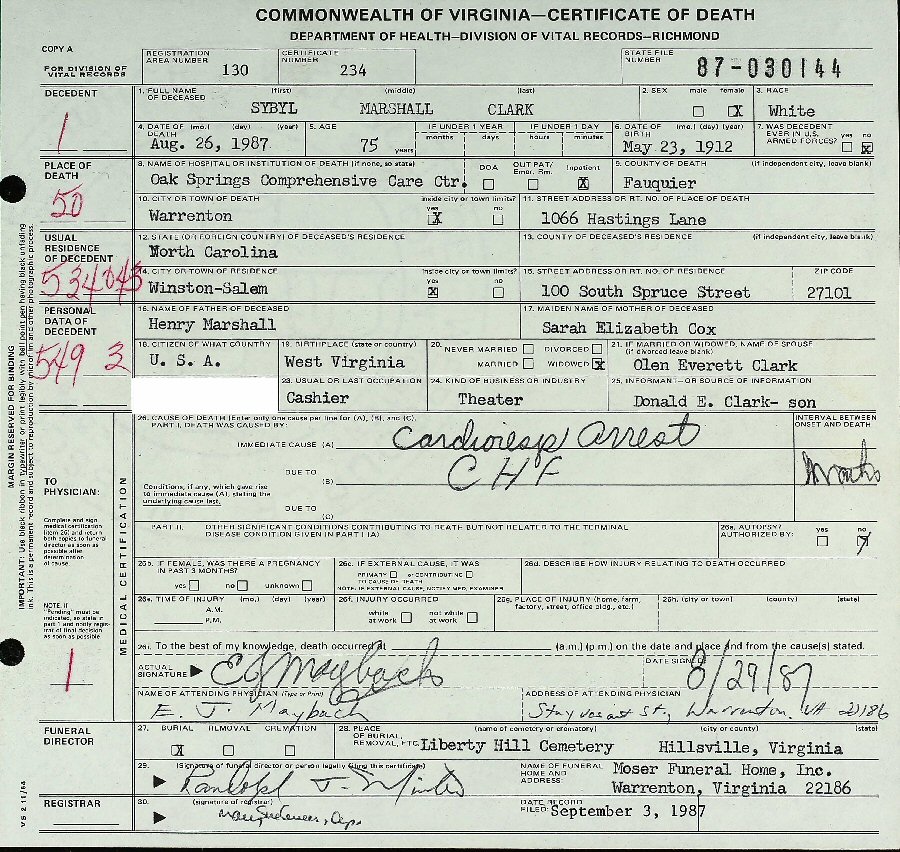 COMMONWEALTH OF VIRGINIA—CERTIFICATE OF DEATH
DEPARTMENT OF HEALTH—DIVISION OF VITAL RECORDS—RICHMOND
COPY A
FOR DIVISION OF VITAL RECORDS
REGISTRATION AREA NUMBER 130
CERTIFICATE NUMBER 234
STATE FILE NUMBER 87-030144
DECEDENT
1
1. FULL NAME OF DECEASED (first) (middle) (last)
SYBYL MARSHALL CLARK
2. SEX male female X
3. RACE White
4. DATE OF DEATH (mo.) (day) (year)
Aug. 26, 1987
5. AGE 75 years
IF UNDER 1 YEAR months days
IF UNDER 1 DAY hours minutes
6. DATE OF BIRTH (mo.) (day) (year)
May 23, 1912
7. WAS DECEDENT EVER IN U.S. ARMED FORCES? yes no X
PLACE OF DEATH
50
8. NAME OF HOSPITAL OR INSTITUTION OF DEATH (if none, so state)
Oak Springs Comprehensive Care Ctr.
DOA OUT PAT/ Emer. Rm. Inpatient X
9. COUNTY OF DEATH (if independent city, leave blank)
Fauquier
10. CITY OR TOWN OF DEATH inside city or town limits? yes X no
Warrenton
11. STREET ADDRESS OR RT. NO. OF PLACE OF DEATH
1066 Hastings Lane
USUAL RESIDENCE OF DECEDENT
534043
12. STATE (OR FOREIGN COUNTRY) OF DECEASED'S RESIDENCE
North Carolina
13. COUNTY OF DECEASED'S RESIDENCE (if independent city, leave blank)
14. CITY OR TOWN OF RESIDENCE inside city or town limits? yes X no
Winston-Salem
15. STREET ADDRESS OR RT. NO. OF RESIDENCE ZIP CODE
100 South Spruce Street 27101
PERSONAL DATA OF DECEDENT
549 3
16. NAME OF FATHER OF DECEASED
Henry Marshall
17. MAIDEN NAME OF MOTHER OF DECEASED
Sarah Elizabeth Cox
18. CITIZEN OF WHAT COUNTRY
U. S. A.
19. BIRTHPLACE (state or country)
West Virginia
20. NEVER MARRIED DIVORCED
MARRIED WIDOWED X
21. IF MARRIED OR WIDOWED, NAME OF SPOUSE (if divorced leave blank)
Olen Everett Clark
23. USUAL OR LAST OCCUPATION
Cashier
24. KIND OF BUSINESS OR INDUSTRY
Theater
25. INFORMANT—OR SOURCE OF INFORMATION
Donald E. Clark- son
MARGIN RESERVED FOR BINDING
IMPORTANT: Use black ribbon in typewriter or print legibly with ball point pen having black unfading ink. This is a permanent record and subject to reproduction by microfilm and other photographic process.
TO PHYSICIAN:
Complete and sign medical certification (item 26) and return both copies to funeral director as soon as possible after determination of cause.
NOTE. If "Pending" must be indicated, so state in part 1 and notify registrar of final decision as soon as possible
1
MEDICAL CERTIFICATION
26. CAUSE OF DEATH (Enter only one cause per line for (A), (B), and (C).
PART I. DEATH WAS CAUSED BY:
INTERVAL BETWEEN ONSET AND DEATH
IMMEDIATE CAUSE (A) Cardioresp Arrest
DUE TO (B) CHF
months
Conditions, if any, which gave rise to immediate cause (A), stating the underlying cause last.
DUE TO (C)
PART II. OTHER SIGNIFICANT CONDITIONS CONTRIBUTING TO DEATH BUT NOT RELATED TO THE TERMINAL DISEASE CONDITION GIVEN IN PART I(A)
26a. AUTOPSY? AUTHORIZED BY: yes no
26b. IF FEMALE, WAS THERE A PREGNANCY IN PAST 3 MONTHS?
yes no unknown
26c. IF EXTERNAL CAUSE, IT WAS
PRIMARY or CONTRIBUTING
TO CAUSE OF DEATH
NOTE: IF EXTERNAL CAUSE, NOTIFY MED. EXAMINER
26d. DESCRIBE HOW INJURY RELATING TO DEATH OCCURRED
26e. TIME OF INJURY (mo.) (day) (year)
A.M.
P.M.
26f. INJURY OCCURRED
while at work not while at work
26g. PLACE OF INJURY (home, farm, factory, street, office bldg., etc.)
26h. (city or town) (county) (state)
26i. To the best of my knowledge, death occurred at (a.m.) (p.m.) on the date and place and from the cause(s) stated.
ACTUAL SIGNATURE EJ Maybach
DATE SIGNED 8/29/87
NAME OF ATTENDING PHYSICIAN (Type or Print)
E. J. Maybach
ADDRESS OF ATTENDING PHYSICIAN
Stuyvesant St., Warrenton, VA 22186
FUNERAL DIRECTOR
27. BURIAL REMOVAL CREMATION
X
28. PLACE OF BURIAL, REMOVAL, ETC. (name of cemetery or crematory) (city or county) (state)
Liberty Hill Cemetery Hillsville, Virginia
29. (Signature of funeral director or person legally filing this certificate)
Randolph J. Minter
NAME OF FUNERAL HOME AND ADDRESS:
Moser Funeral Home, Inc.
Warrenton, Virginia 22186
REGISTRAR
30. (signature of registrar)
DATE RECORD FILED: September 3, 1987
VS 2 11/84